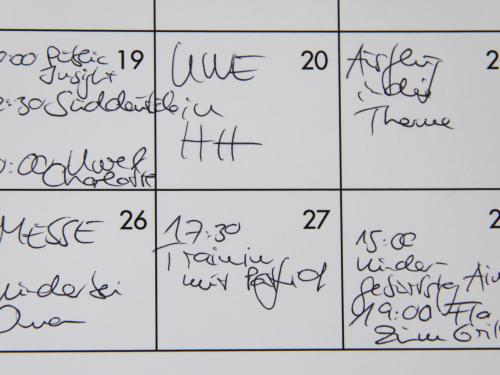 19
:00 Public
Insight
:30 Süddeutsche in
:00 Uwe &
Charlotte
20
UWE
HH
2
Ausflug
in die
Therme
26
MESSE
Kinder bei
Oma
27
17:30
Training
mit
2
15:00
Kinder-
geburtstag
19:00
zum Grill